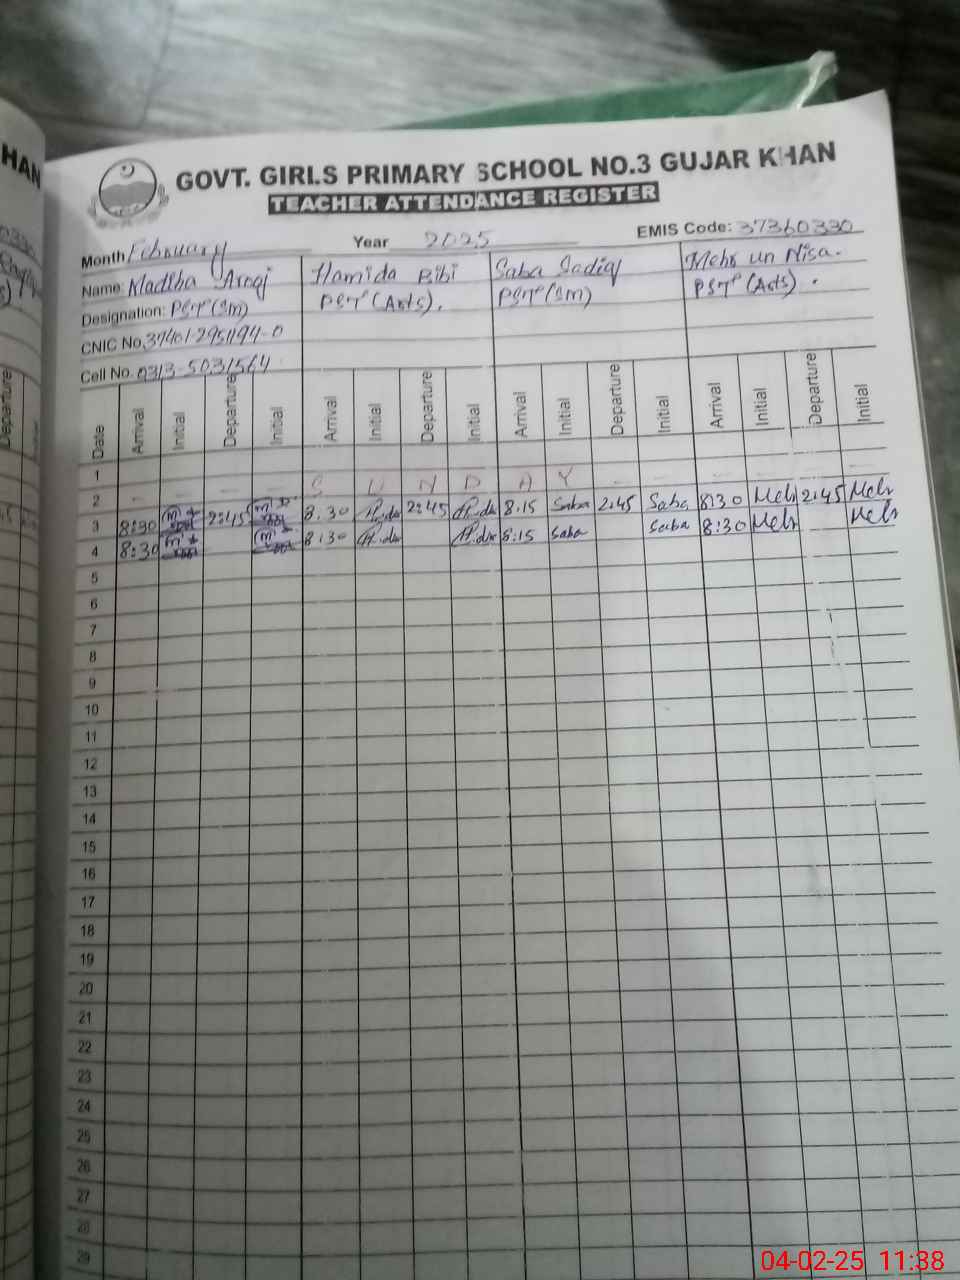 HAN
GOVT. GIRLS PRIMARY SCHOOL NO.3 GUJAR KHAN
TEACHER ATTENDANCE REGISTER
Month February Year 2025 EMIS Code: 37360330
Name: Madiha Hamida Bibi Saba Sadiq Mehr un Nisa.
Designation: PST (SM) PST (Arts). PST (SM) PST (Arts).
CNIC No. 37401-2951194-0
Cell No. 0313-5031564
Date Arrival Initial Departure Initial Arrival Initial Departure Initial Arrival Initial Departure Initial Arrival Initial Departure Initial
1
2 S U N D A Y
3 8:30 2:45 8:30 2:45 8:15 Saba 2:45 Saba 8:30 Meh 2:45 Meh
4 8:30 8:30 8:15 Saba Saba 8:30 Meh Meh
5
6
7
8
9
10
11
12
13
14
15
16
17
18
19
20
21
22
23
24
25
26
27
28
29
04-02-25 11:38